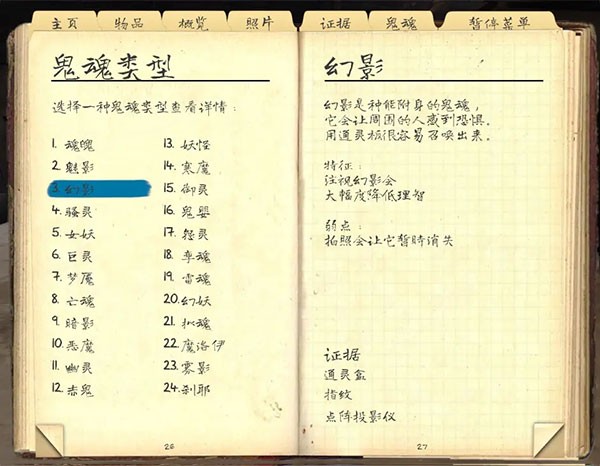 主页 物品 概览 照片 证据 鬼魂 暂停菜单
鬼魂类型
选择一种鬼魂类型查看详情：
1. 魂魄
2. 魅影
3. 幻影
4. 骚灵
5. 女妖
6. 巨灵
7. 梦魇
8. 亡魂
9. 暗影
10. 恶魔
11. 幽灵
12. 赤鬼
13. 妖怪
14. 寒魔
15. 御灵
16. 鬼婴
17. 怨灵
18. 孪魂
19. 雷魂
20. 幻妖
21. 拟魂
22. 魔洛伊
23. 雾影
24. 刹耶
26
幻影
幻影是种能附身的鬼魂，
它会让周围的人感到恐惧．
用通灵板很容易召唤出来．
特征：
注视幻影会
大幅度降低理智
弱点：
拍照会让它暂时消失
证据
通灵盒
指纹
点阵投影仪
27